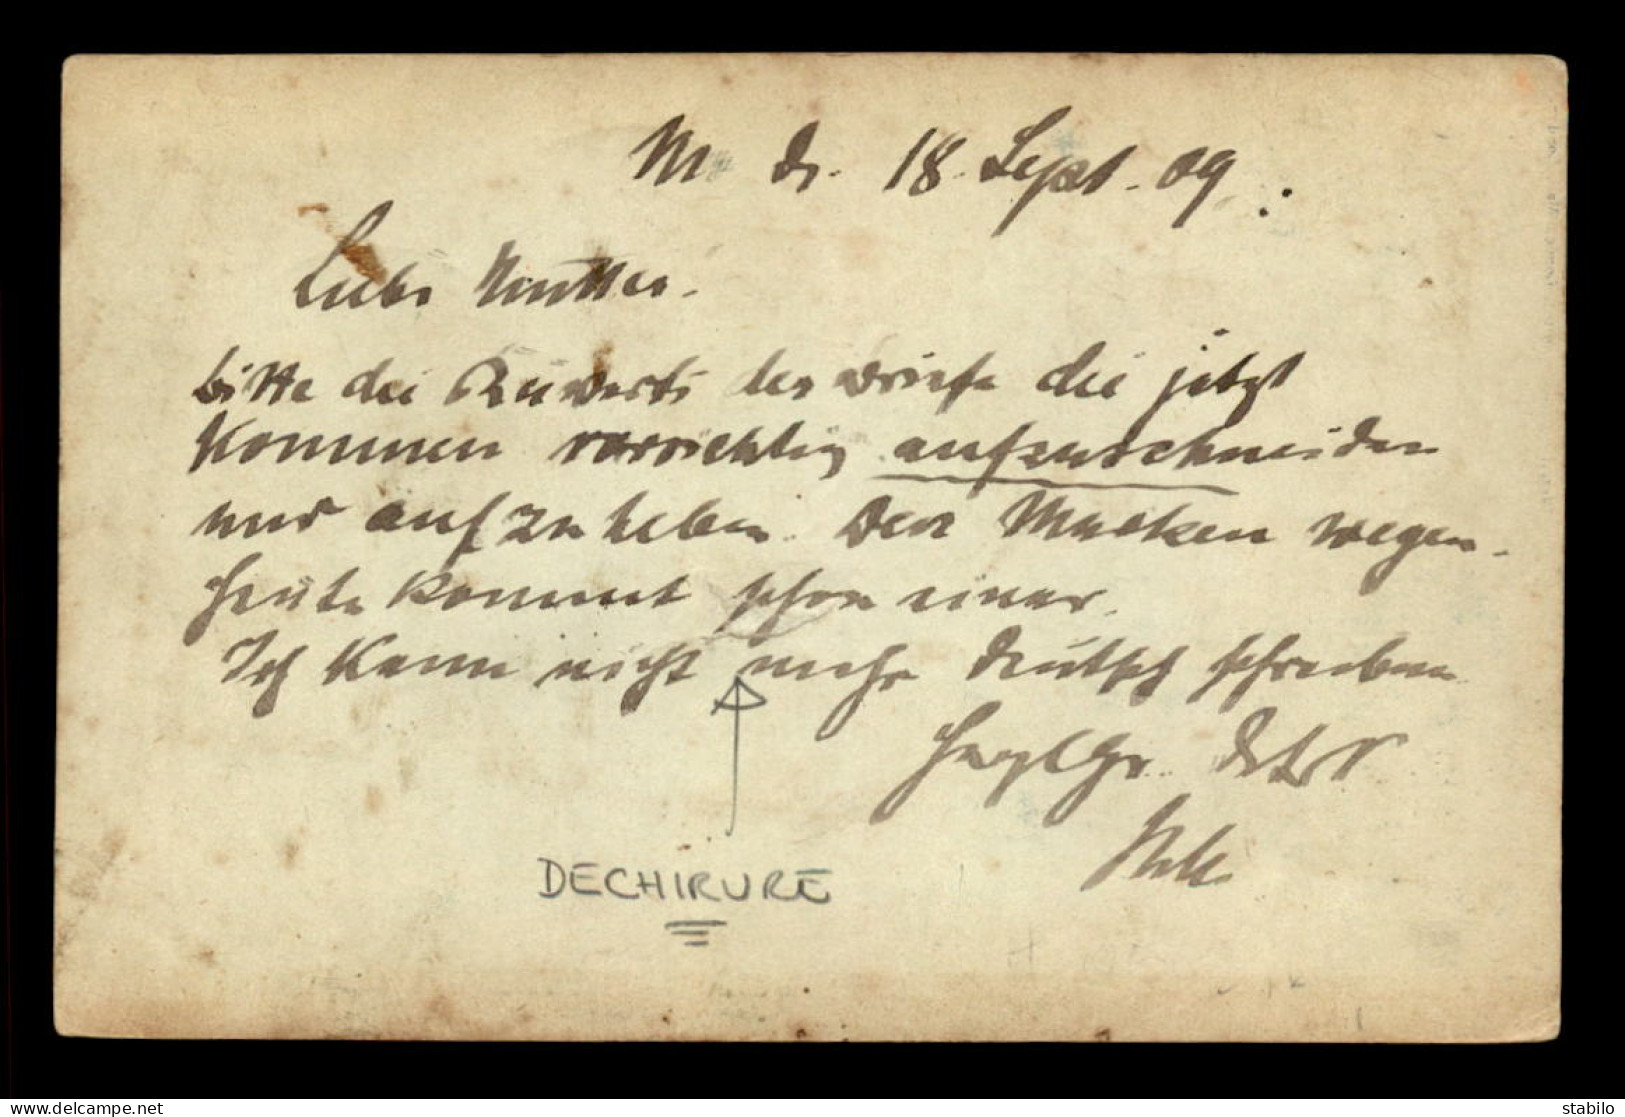 M. d. 18. Sept. 09.
Liebe Mutter.
bitte die Kuverts der Briefe die jetzt
kommen vorsichtig aufzuschneiden
und aufzuheben. Der Marken wegen.
Heute kommt schon einer.
Ich kann nicht mehr deutsch schreiben
Herzl Gr.
DECHIRURE
delcampe.net
stabilo